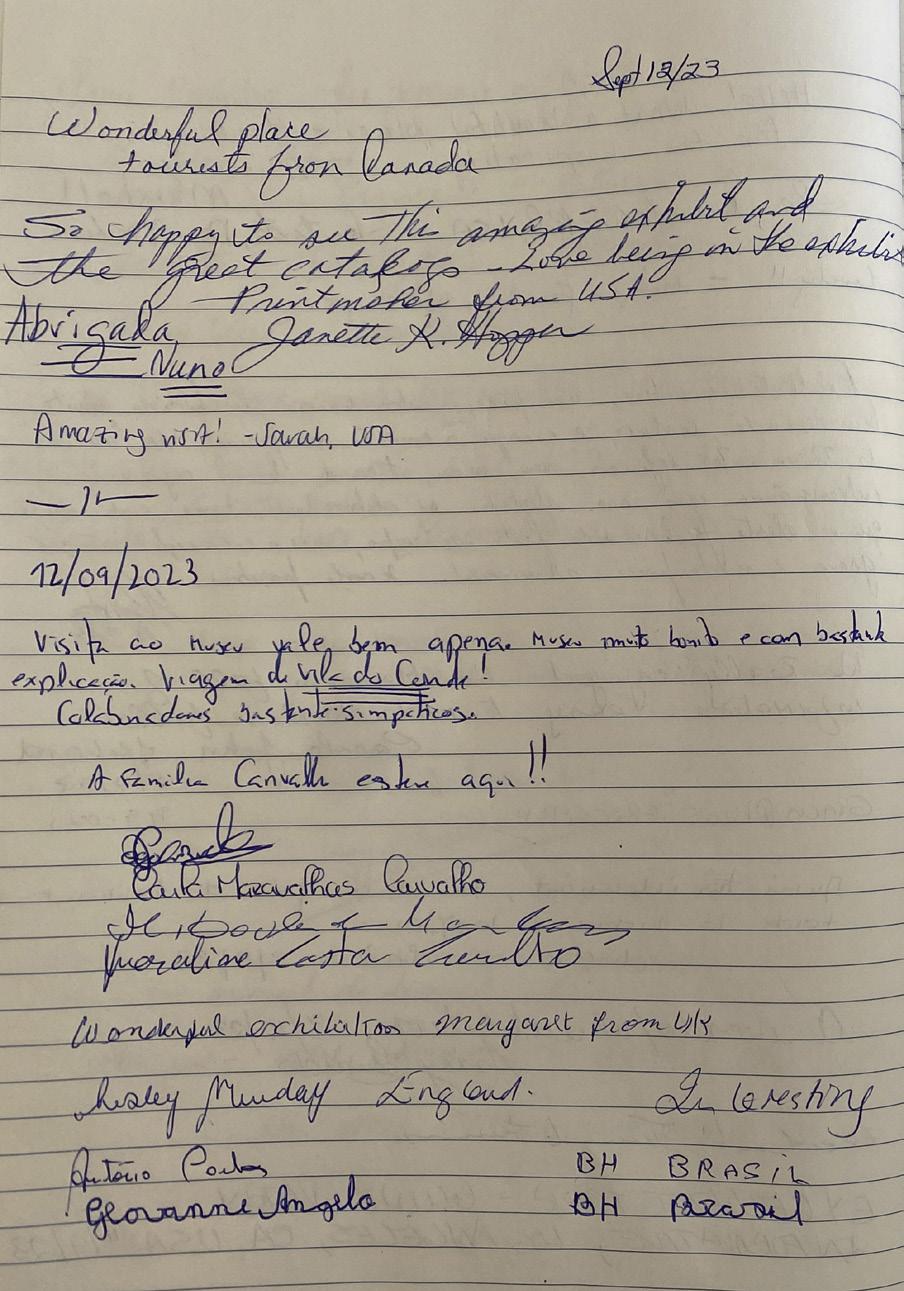 Sept 12/23
Wonderful place
tourists from Canada
So happy to see This amazing exhibit and
the great catalogs - Love being in the exhibit
Printmaker from USA.
Abrigada, Janette K. Hopper
Nuno
Amazing visit! - Sarah, USA
12/09/2023
Visita ao museu vale bem apena. Museu muito bonito e com bastante
explicação. Viagem de Vila do Conde!
Colaboradores bastante simpáticos.
A família Carvalho esteve aqui!!
Carla Maravalhas Carvalho
Costa
Wonderful exchibition Margaret from UK
Lesley Munday England. Interesting
António BH BRASIL
Geovanne Angelo BH Brasil